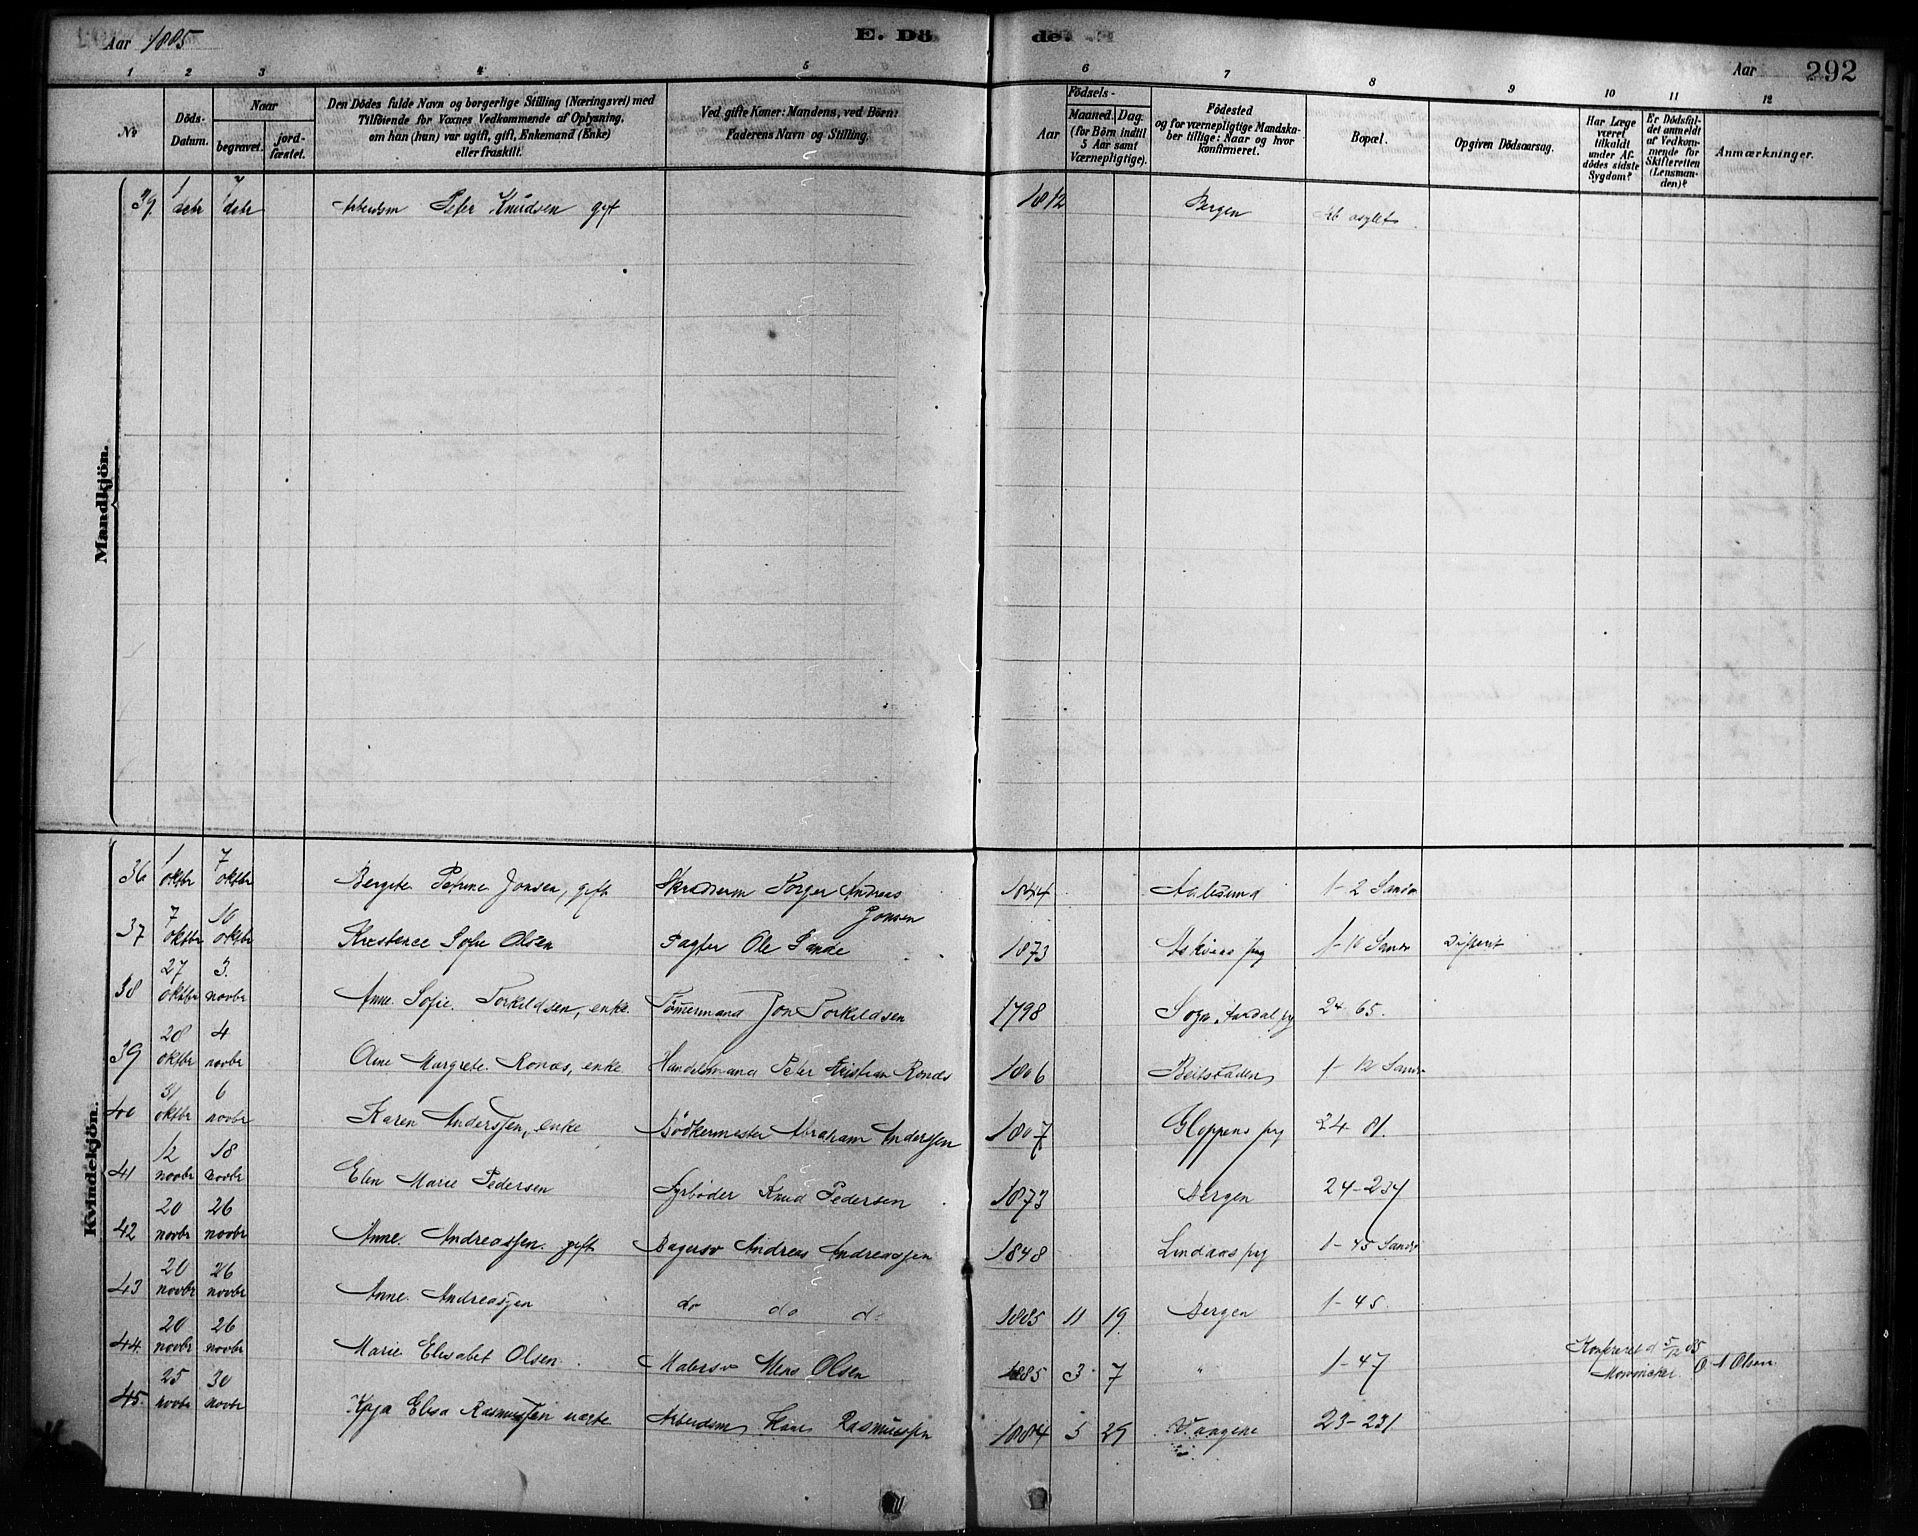 Aar 1885 E. Dö de. Aar 292
1 2 3 4 5 6 7 8 9 10 11 12
No Döds-Datum. Naar begravet. jord-fæstet. Den Dödes fulde Navn og borgerlige Stilling (Næringsvei) med Tilföiende for Voxnes Vedkommende af Oplysning, om han (hun) var ugift, gift, Enkemand (Enke) eller fraskilt. Ved gifte Koner: Mandens, ved Börn: Faderens Navn og Stilling. Födsels- Aar Maaned. Dag. (for Börn indtil 5 Aar samt Værnepligtige). Födested og for værnepligtige Mandskaber tillige: Naar og hvor konfirmeret. Bopæl. Opgiven Dödsaarsag. Har Læge været tilkaldt under Afdödes sidste Sygdom? Er Dödsfaldet anmeldt af Vedkommende for Skifteretten (Lensmanden)? Anmærkninger.
Mandkjön.
39. 1 debr 7 debr Arbeidsm Peter Knudsen gift 1812 Bergen Ab asylet
Kvindekjön.
36 1 oktbr 7 oktbr Bergite Petrine Jonsen, gift Skræderm Torger Andreas Jonsen 1844 Aalesund 1-2 Sandv
37 7 oktbr 10 oktbr Kristence Sofie Olsen Pagter Ole Sande 1873 Askvolds prg 1-10 Sandv Difterit
38 27 oktbr 3. novbr Anne Sofie Torkildsen, enke Tömermand Jon Torkildsen 1798 Sogn, Aardal prg 24-65.
39 28 oktbr 4 novbr Olene Margrete Ronæs, enke Handelsmand Peter Kristian Ronæs 1806 Beitstaden 1-12 Sandv
40 31 oktbr 6 novbr Karen Anderssen, enke Bödkermester Abraham Anderssen 1807 Gloppens prg 24 81.
41 12 novbr 18 novbr Elen Marie Pedersen Fyrböder Knud Pedersen 1873 Bergen 24-234
42 20 novbr 26 novbr Anne Andreassen gift Bagersv Andreas Andreassen 1848 Lindaas prg 1-45 Sandv
43 20 novbr 26 novbr Anne Andreassen do do do 1885 11 19 Bergen 1-45.
44. 20 novbr 26 novbr Marie Elisabet Olsen Malersv Mens Olsen 1885 3 7 " 1-47 Konfereret d 5/12 85 O A Olsen
45. 25 novbr 30 novbr Kaja Elisa Rasmussen uægte Arbeidsm Hans Rasmussen 1884 5 29 Vangene 23-231